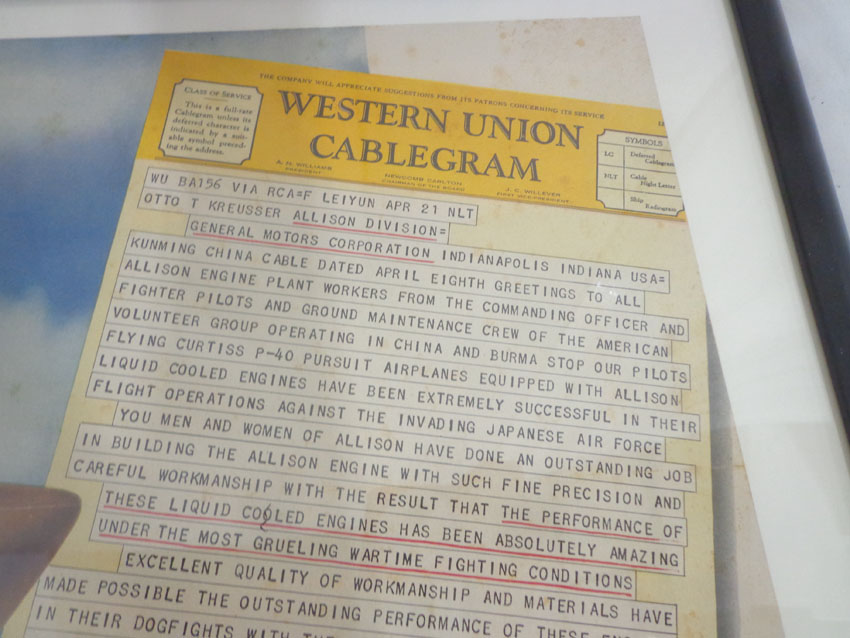 THE COMPANY WILL APPRECIATE SUGGESTIONS FROM ITS PATRONS CONCERNING ITS SERVICE
CLASS OF SERVICE
This is a full-rate
Cablegram unless its
deferred character is
indicated by a suit-
able symbol preced-
ing the address.
WESTERN UNION
CABLEGRAM
R. B. WHITE
PRESIDENT
NEWCOMB CARLTON
CHAIRMAN OF THE BOARD
J. C. WILLEVER
FIRST VICE-PRESIDENT
SYMBOLS
LC Deferred Cablegram
NLT Cable Night Letter
Ship Radiogram
WU BA156 VIA RCA=F LEIYUN APR 21 NLT
OTTO T KREUSSER ALLISON DIVISION=
GENERAL MOTORS CORPORATION INDIANAPOLIS INDIANA USA=
KUNMING CHINA CABLE DATED APRIL EIGHTH GREETINGS TO ALL
ALLISON ENGINE PLANT WORKERS FROM THE COMMANDING OFFICER AND
FIGHTER PILOTS AND GROUND MAINTENANCE CREW OF THE AMERICAN
VOLUNTEER GROUP OPERATING IN CHINA AND BURMA STOP OUR PILOTS
FLYING CURTISS P-40 PURSUIT AIRPLANES EQUIPPED WITH ALLISON
LIQUID COOLED ENGINES HAVE BEEN EXTREMELY SUCCESSFUL IN THEIR
FLIGHT OPERATIONS AGAINST THE INVADING JAPANESE AIR FORCE
YOU MEN AND WOMEN OF ALLISON HAVE DONE AN OUTSTANDING JOB
IN BUILDING THE ALLISON ENGINE WITH SUCH FINE PRECISION AND
CAREFUL WORKMANSHIP WITH THE RESULT THAT THE PERFORMANCE OF
THESE LIQUID COOLED ENGINES HAS BEEN ABSOLUTELY AMAZING
UNDER THE MOST GRUELING WARTIME FIGHTING CONDITIONS
EXCELLENT QUALITY OF WORKMANSHIP AND MATERIALS HAVE
MADE POSSIBLE THE OUTSTANDING PERFORMANCE OF THESE
IN THEIR DOGFIGHTS WITH